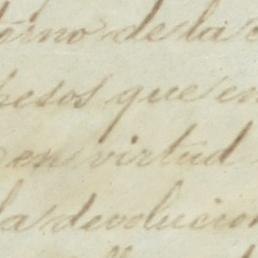 de la
pesos que en
en virtud
la devolucion